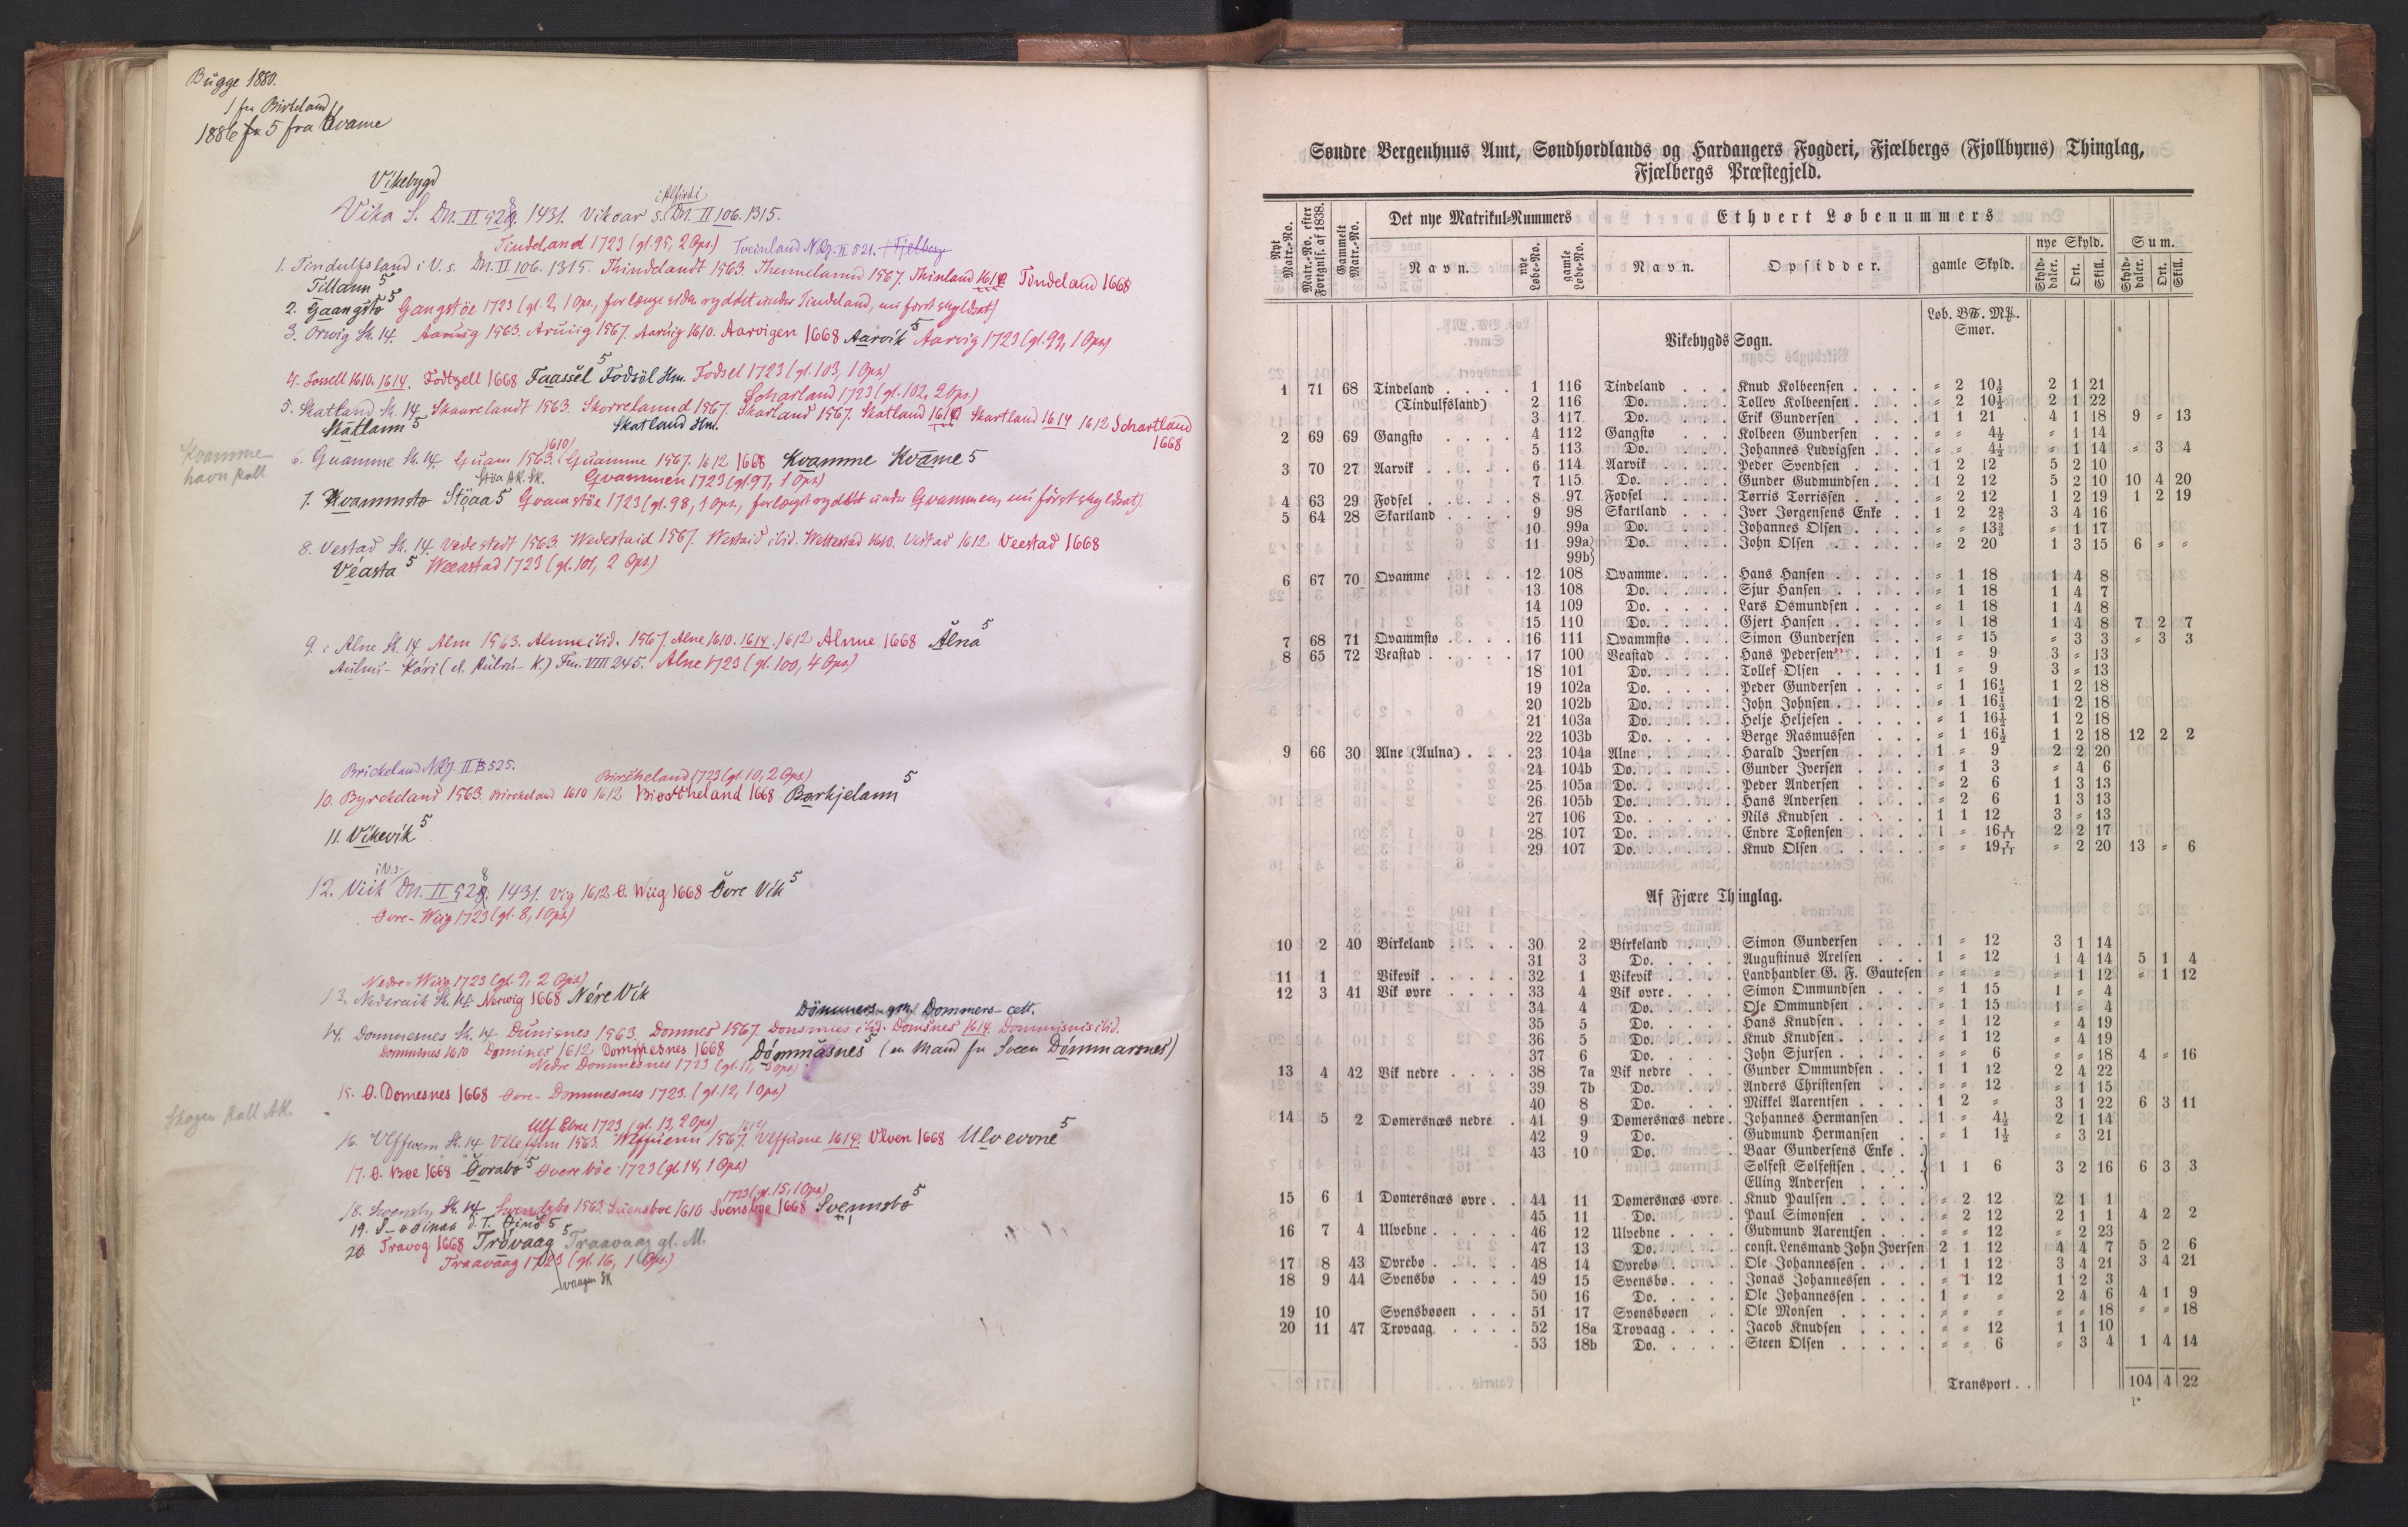 Bugge 1880.
1 fra Birkeland
1886 fr 5 fra Kvame
Vikebygd
i Alfirdi
Vika S. Dn. II 528. 1431. Vikoar s. Dn. II 106. 1315.
Tindeland 1723 (gl. 95, 2 Ops.) Tveinland NRJ. II 521. Fjelberg
1. Tindulfsland i V. s. Dn. II 106. 1315. Thindelandt 1563. Thennelannd 1567. Thinland 1610 Tindeland 1668
Tillann 5
2. Gaangstø 5 Gangstöe 1723 (gl. 2, 1 Ops., for længe siden ryddet under Tindeland, nu først skyldsat)
3. Orwig St. 14. Aaruig 1563. Aruiig 1567. Aaruig 1610. Aarvigen 1668 Aarvik 5 Aarvig 1723 (gl. 99, 1 Ops)
4. Fossell 1610. 1614. Fodtzell 1668 Faassel 5 Fodsöl Hm. Fodsel 1723 (gl. 103, 1 Ops)
Scharland 1723 (gl. 102, 2 Ops.)
5. Skatland St. 14. Skaarelandt 1563. Skorrelannd 1567. Skarland 1567. Skatland 1610 Skartland 1614 1612 Schartland
1668
Skatlann 5 Skatland Hm.
Kvamme-
havn Kall
6. Guamme St. 14. Guam 1563. (1610) Guamme 1567. 1612 1668 Kvamme Kvame 5
Stöa AK. SK. Gvammen 1723 (gl. 97, 1 Ops)
7. Kvammstø Stöaa 5 Gvamstöe 1723 (gl. 98, 1 Ops., forlængst ryddet under Gvammen, nu först skyldsat).
8. Vestad St. 14. Vedestedt 1563. Wedestaid 1567. Westaid ibid. Wettestad 1610. Vestad 1612 Veestad 1668
Véasta 5 Weeastad 1723 (gl. 101, 2 Ops.)
9. Alne St. 14. Alm 1563. Alnne ibid. 1567. Alne 1610. 1614. 1612 Alnne 1668 Ålna 5
Aulnu-Kári (el. Aulvu-K.) Fm. VIII 245. Alne 1723 (gl. 100, 4 Ops)
Brickeland NRJ. II 525.
Bircheland 1723 (gl. 10, 2 Ops.)
10. Byrckeland 1563. Birckeland 1610 1612 Biørcheland 1668 Børkjelann 5
11. Vikevik 5
i V. s.
12. Viik Dn. II 528. 1431. Vig 1612 Ø. Wiig 1668 Övre Vik 5
Øvre-Wiig 1723 (gl. 8, 1 Ops)
Nedre-Wiig 1723 (gl. 9, 2 Ops.)
13. Nederuik St. 14. Nerwig 1668 Nére Vik
Dommers- cett.
14. Dommesnes St. 14. Dunisnes 1563. Domnes 1567. Donsmnes ibid. Domsnes 1614. Dommisnis ibid.
Dommisnes 1610 Domines 1612 Dommesnes 1668 Dómmasnes 5 (en Mand fra Sveen Dómmarsnes)
Nedre Dommesnes 1723 (gl. 11, 3 Ops)
15. Ø. Domesnes 1668 Øvre-Dommesnes 1723. (gl. 12, 1 Ops)
Skogen Kall AK.
Ulf Ebne 1723 (gl. 13, 2 Ops)
16. Ulffwern St. 14. Vlleffnn 1563. Wlffuenn 1567. Vlffuene 1614. Vlven 1668 Ulvevone 5
17. Ø. Bøe 1668 Övrabø 5 Øverebøe 1723 (gl. 14, 1 Ops)
1723 (gl. 15, 1 Ops)
18. Swensby St. 14. Swendzbo 1563. Suensboe 1610 Svensbøe 1668 Svennsbø 5
20. Travog 1668 Tróvaag 5 Traavaag gl. M.
Traavaag 1723 (gl. 16, 1 Ops.)
Søndre Bergenhuus Amt, Søndhordlands og Hardangers Fogderi, Fjælbergs (Fjollbyrns) Thinglag,
Fjælbergs Præstegjeld.
Nyt Matr.-No. Matr.-No. efter Fortgnlf. af 1838. Gammelt Matr.-No. Det nye Matrikul-Nummers Ethvert Løbenummers
Navn. nye Løbe-No. gamle Løbe-No. Navn. Opsidder. gamle Skyld. nye Skyld. Sum.
Skylddaler. Ort. Skill. Skylddaler. Ort. Skill.
Løb. B℔. M℔.
Smør.
Vikebygds Sogn.
1 71 68 Tindeland 1 116 Tindeland Knud Kolbeensen = 2 10½ 2 1 21
(Tindulfsland) 2 116 Do. Tollev Kolbeensen = 2 10½ 2 1 22
3 117 Do. Erik Gundersen 1 1 21 4 1 18 9 = 13
2 69 69 Gangstø 4 112 Gangstø Kolbeen Gundersen = = 4½ = 1 14
5 113 Do. Johannes Ludvigsen = = 4½ = 1 14 = 3 4
3 70 27 Aarvik 6 114 Aarvik Peder Svendsen 1 2 12 5 2 10
7 115 Do. Gunder Gudmundsen 1 2 12 5 2 10 10 4 20
4 63 29 Fodsel 8 97 Fodsel Torris Torrissen = 2 12 1 2 19 1 2 19
5 64 28 Skartland 9 98 Skartland Iver Jørgensens Enke 1 2 2⅔ 3 4 16
10 99a Do. Johannes Olsen = = 13⅔ = 1 17
11 99a Do. John Olsen = 2 20 1 3 15 6 = =
99b
6 67 70 Qvamme 12 108 Qvamme Hans Hansen = 1 18 1 4 8
13 108 Do. Sjur Hansen = 1 18 1 4 7
14 109 Do. Lars Osmundsen = 1 18 1 4 8
15 110 Do. Gjert Hansen = 1 18 1 4 8 7 2 7
7 68 71 Qvammstø 16 111 Qvammstø Simon Gundersen = = 15 = 3 3 = 3 3
8 65 72 Veastad 17 100 Veastad Hans Pedersen 1 = 9 3 = 13
18 101 Do. Tollef Olsen 1 = 9 3 = 13
19 102a Do. Peder Gundersen = 1 16½ 1 2 18
20 102b Do. John Johnsen = 1 16½ 1 2 18
21 103a Do. Helje Heljesen = 1 16½ 1 2 18
22 103b Do. Berge Rasmussen = 1 16½ 1 2 18 12 2 2
9 66 30 Alne (Aulna) 23 104a Alne Harald Iversen 1 = 9 2 2 20
24 104b Do. Gunder Iversen = 1 3 = 4 6
25 105a Do. Peder Andersen = 2 6 1 3 13
26 105b Do. Hans Andersen = 2 6 1 3 13
27 106 Do. Nils Knudsen 1 1 12 3 = 13
28 107 Do. Endre Tostensen 1 = 16 4/11 2 2 17
29 107 Do. Knud Olsen = = 19 7/11 = 2 20 13 = 6
Af Fjære Thinglag.
10 2 40 Birkeland 30 2 Birkeland Simon Gundersen 1 = 12 3 1 14
31 3 Do. Augustinus Arelsen 1 = 12 1 4 14 5 1 4
11 1 Vikevik 32 1 Vikevik Landhandler G. F. Gautesen = = = = 1 12 = 1 12
12 3 41 Vik øvre 33 4 Vik øvre Simon Ommundsen = 1 15 1 = 4
34 4 Do. Ole Ommundsen = 1 15 1 = 4
35 5 Do. Hans Knudsen = 1 12 = 4 19
36 5 Do. Knud Knudsen = 1 12 = 4 19
37 6 Do. John Sjursen = = 6 = = 18 4 = 16
13 4 42 Vik nedre 38 7a Vik nedre Gunder Ommundsen 1 1 12 2 4 22
39 7b Do. Anders Christensen = = 12 = 1 15
40 8 Do. Mikkel Aarentsen 1 2 = 3 1 22 6 3 11
14 5 2 Dømersnæs nedre 41 9 Dømersnæs nedre Johannes Hermansen 1 = 4½ 2 1 14
42 9 Do. Gudmund Hermansen = 1 1½ = 3 21
43 10 Do. Baar Gundersens Enke
Sølfest Sølfestsen 1 1 6 3 2 16 6 3 3
Elling Andersen
15 6 1 Dømersnæs øvre 44 11 Dømersnæs øvre Knud Paulsen = 2 12 2 1 1
45 11 Do. Paul Simonsen = 2 12 2 1 1 4 2 2
16 7 4 Ulvebne 46 12 Ulvebne Gudmund Aarentsen = = 12 = 2 23
47 13 Do. const. Lensmand John Iversen 2 1 12 4 4 7 5 2 6
17 8 43 Øvrebø 48 14 Øvrebø Ole Johannessen 1 1 12 3 4 21 3 4 21
18 9 44 Svensbø 49 15 Svensbø Jonas Johannessen = 1 12 1 2 3
50 16 Do. Ole Johannessen 1 = = 2 4 6 4 1 9
19 10 Svensbøoen 51 17 Svensbøoen Ole Monsen = = = = = 18 = = 18
20 11 47 Trovaag 52 18a Trovaag Jacob Knudsen = = 12 1 1 10
53 18b Do. Steen Olsen = = 6 = 3 4 1 4 14
Transport 104 4 22
1*